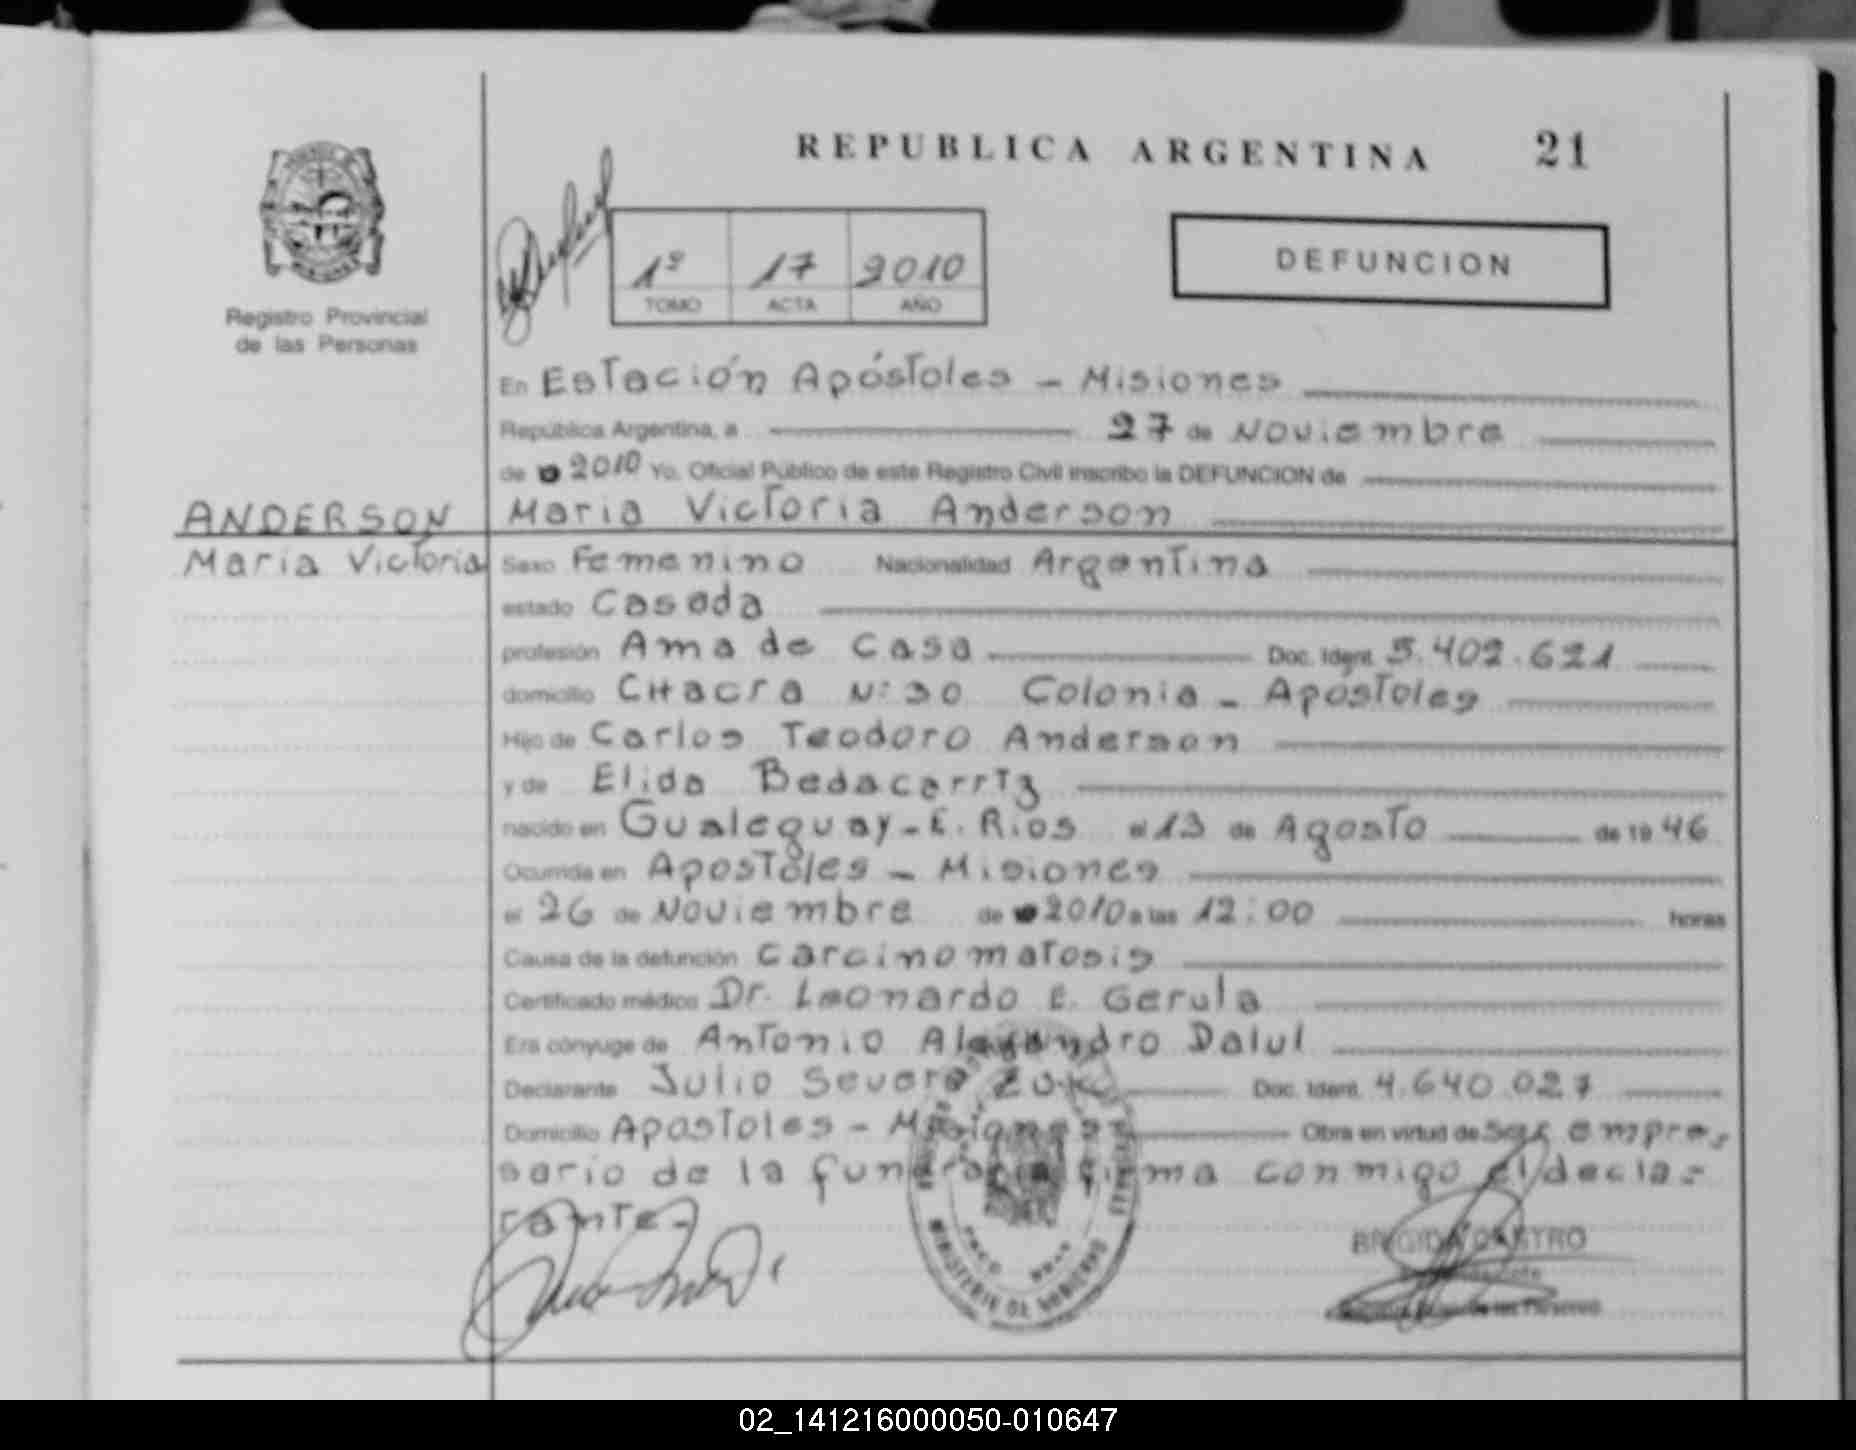 REPUBLICA ARGENTINA 21
1º 17 2010
TOMO ACTA AÑO
DEFUNCION
Registro Provincial
de las Personas
En Estación Apóstoles - Misiones
República Argentina, a 27 de Noviembre
de 2010 Yo, Oficial Público de este Registro Civil inscribo la DEFUNCION de
ANDERSON Maria Victoria Anderson
Maria Victoria Sexo Femenino Nacionalidad Argentina
estado Casada
profesión Ama de Casa Doc. Ident. 5.402.621
domicilio CHacra Nº 30 Colonia - Apóstoles
Hijo de Carlos Teodoro Anderson
y de Elida Bedacarrtz
nacido en Gualeguay - E. Rios el 13 de Agosto de 19 46
Ocurrida en Apostoles - Misiones
el 26 de Noviembre de 2010 a las 12:00 horas
Causa de la defunción Carcinomatosis
Certificado médico Dr. Leonardo E. Gerula
Era cónyuge de Antonio Alejandro Dalul
Declarante Julio Severo Doc. Ident. 4.640.027
Domicilio Apostoles - Misiones Obra en virtud de ser empre-
sario de la funeraria firma conmigo el decla-
rante.
MINISTERIO DE GOBIERNO
BRIGIDA CASTRO
02_141216000050-010647